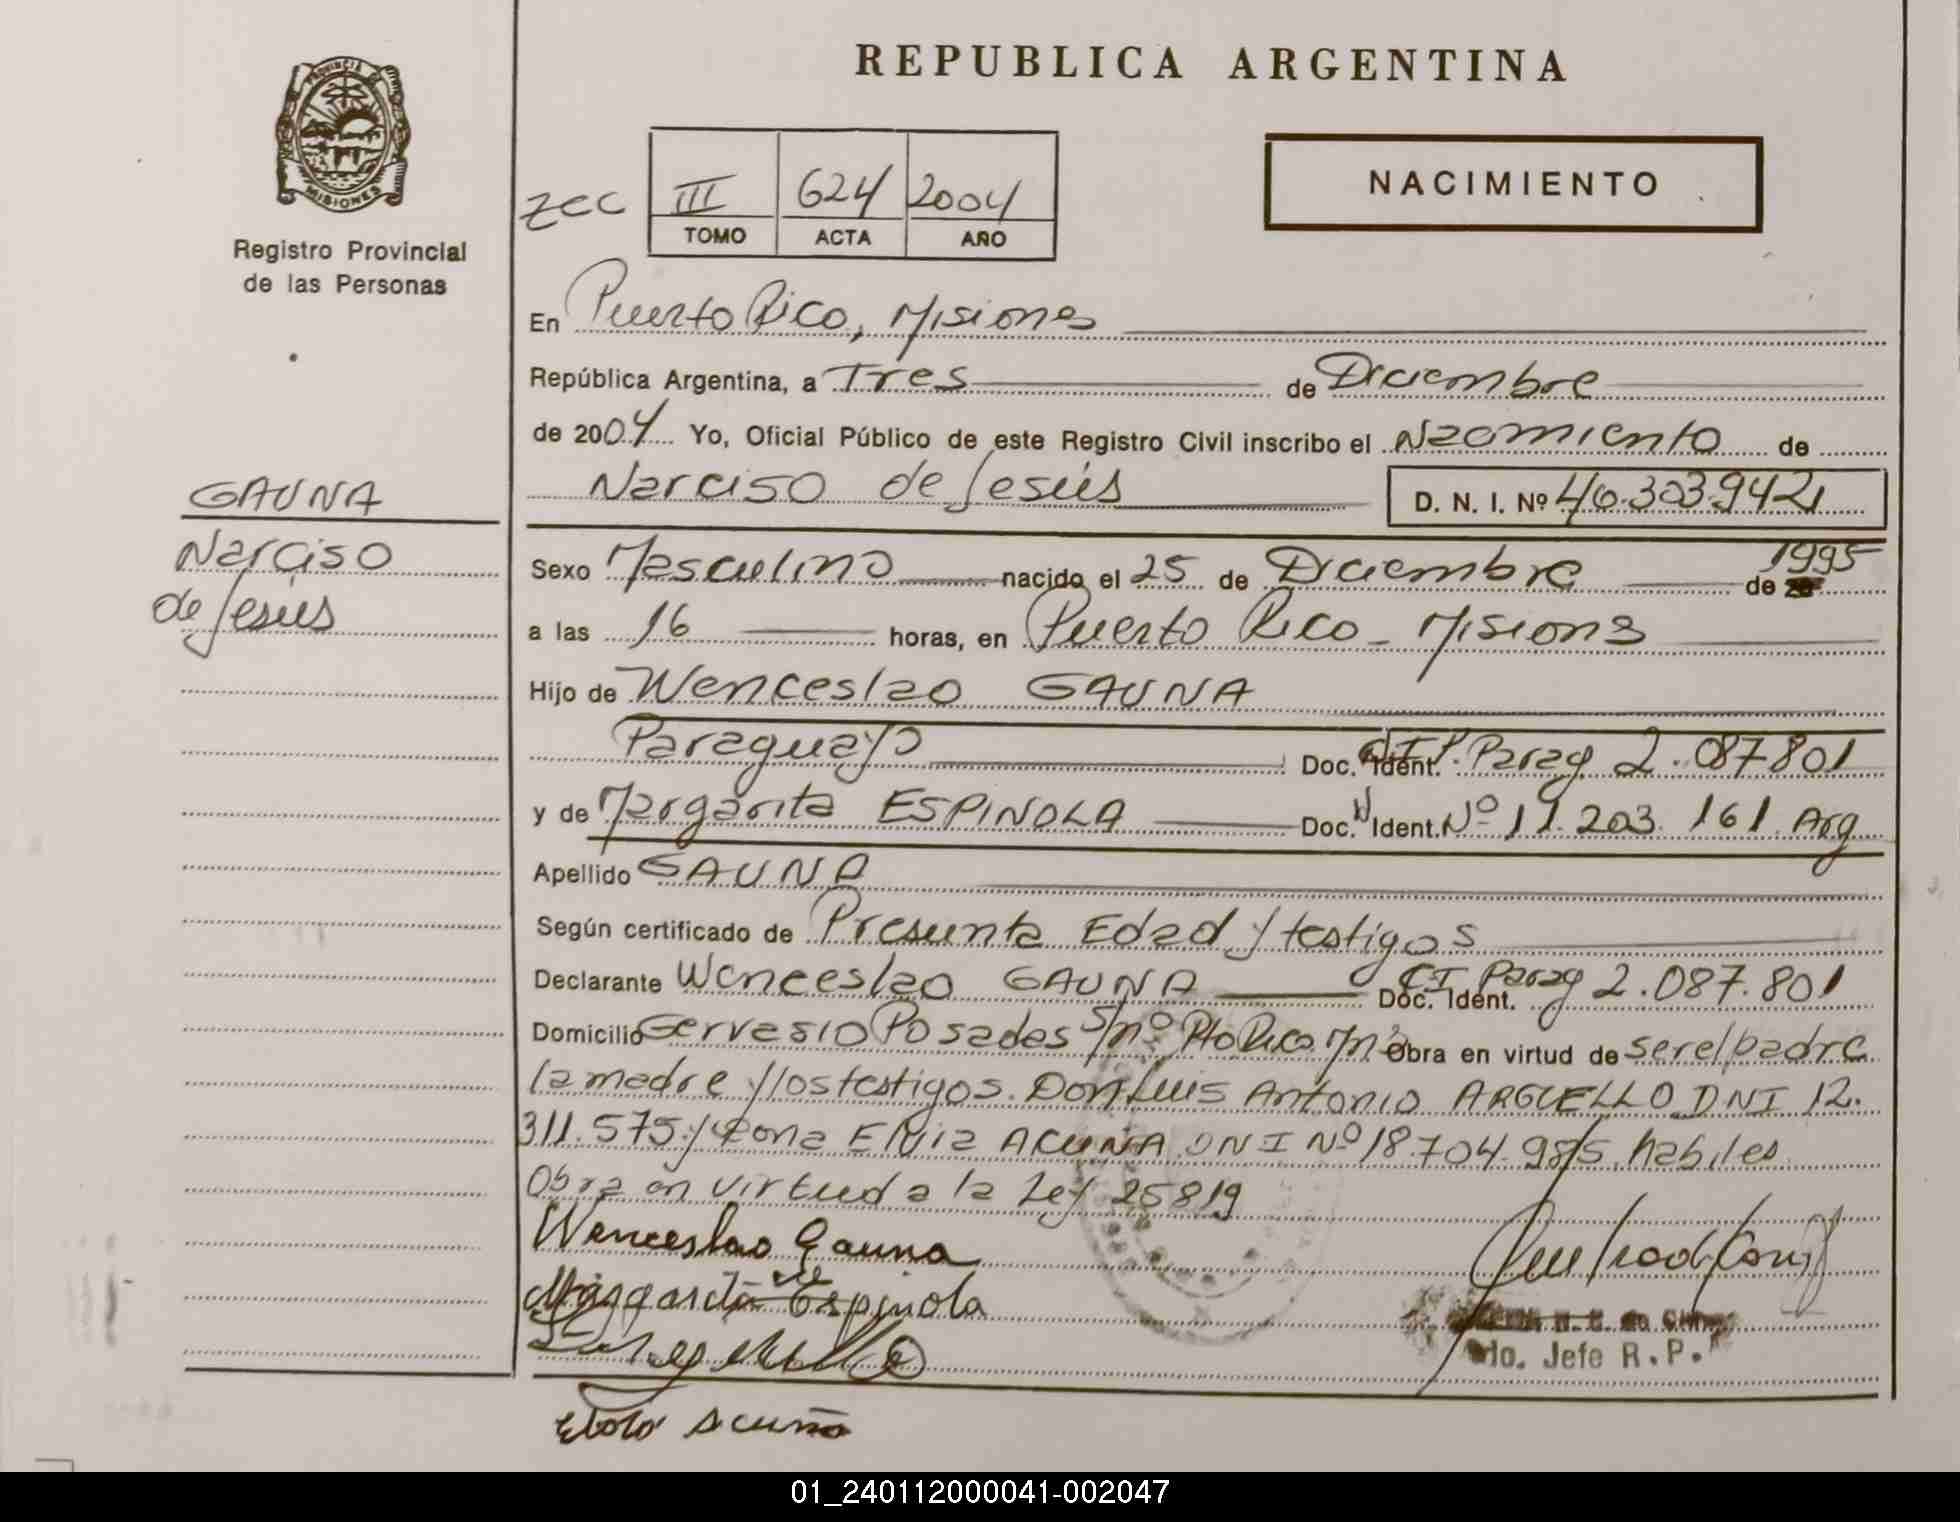 REPUBLICA ARGENTINA
PROVINCIA DE
MISIONES
Registro Provincial
de las Personas
NACIMIENTO
III 624 2004
TOMO ACTA AÑO
En Puerto Rico, Misiones
República Argentina, a Tres de Diciembre
de 2004 Yo, Oficial Público de este Registro Civil inscribo el Nacimiento de
Narciso de Jesús D. N. I. Nº 40.303.942
GAUNA
Narciso
de Jesús
Sexo Masculino nacido el 25 de Diciembre de 1995
a las 16 horas, en Puerto Rico - Misiones
Hijo de Wenceslao GAUNA
Paraguayo Doc. Ident. Parag 2.087.801
y de Margarita ESPINOLA Doc. Ident. Nº 11.203.161 Arg
Apellido GAUNA
Según certificado de Presunta Edad y testigos
Declarante Wenceslao GAUNA Doc. Ident. CI Parag 2.087.801
Domicilio Gervasio Posadas S/nº Pto Rico Mnes Obra en virtud de ser el padre
la madre y los testigos. Don Luis Antonio ARGUELLO DNI 12.
311.575 y Dona Elvia ACUNA DNI Nº 18.704.985 habiles
Obra en virtud a la Ley 25819
Wenceslao Gauna
Margarita Espinola
Acuña
do. Jefe R.P.
01_240112000041-002047